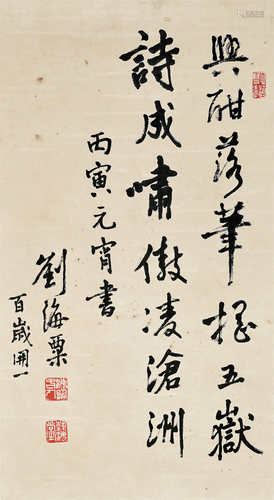 興酣落筆搖五嶽
詩成嘯傲凌滄洲
丙寅元宵書
劉海粟
百歲開一